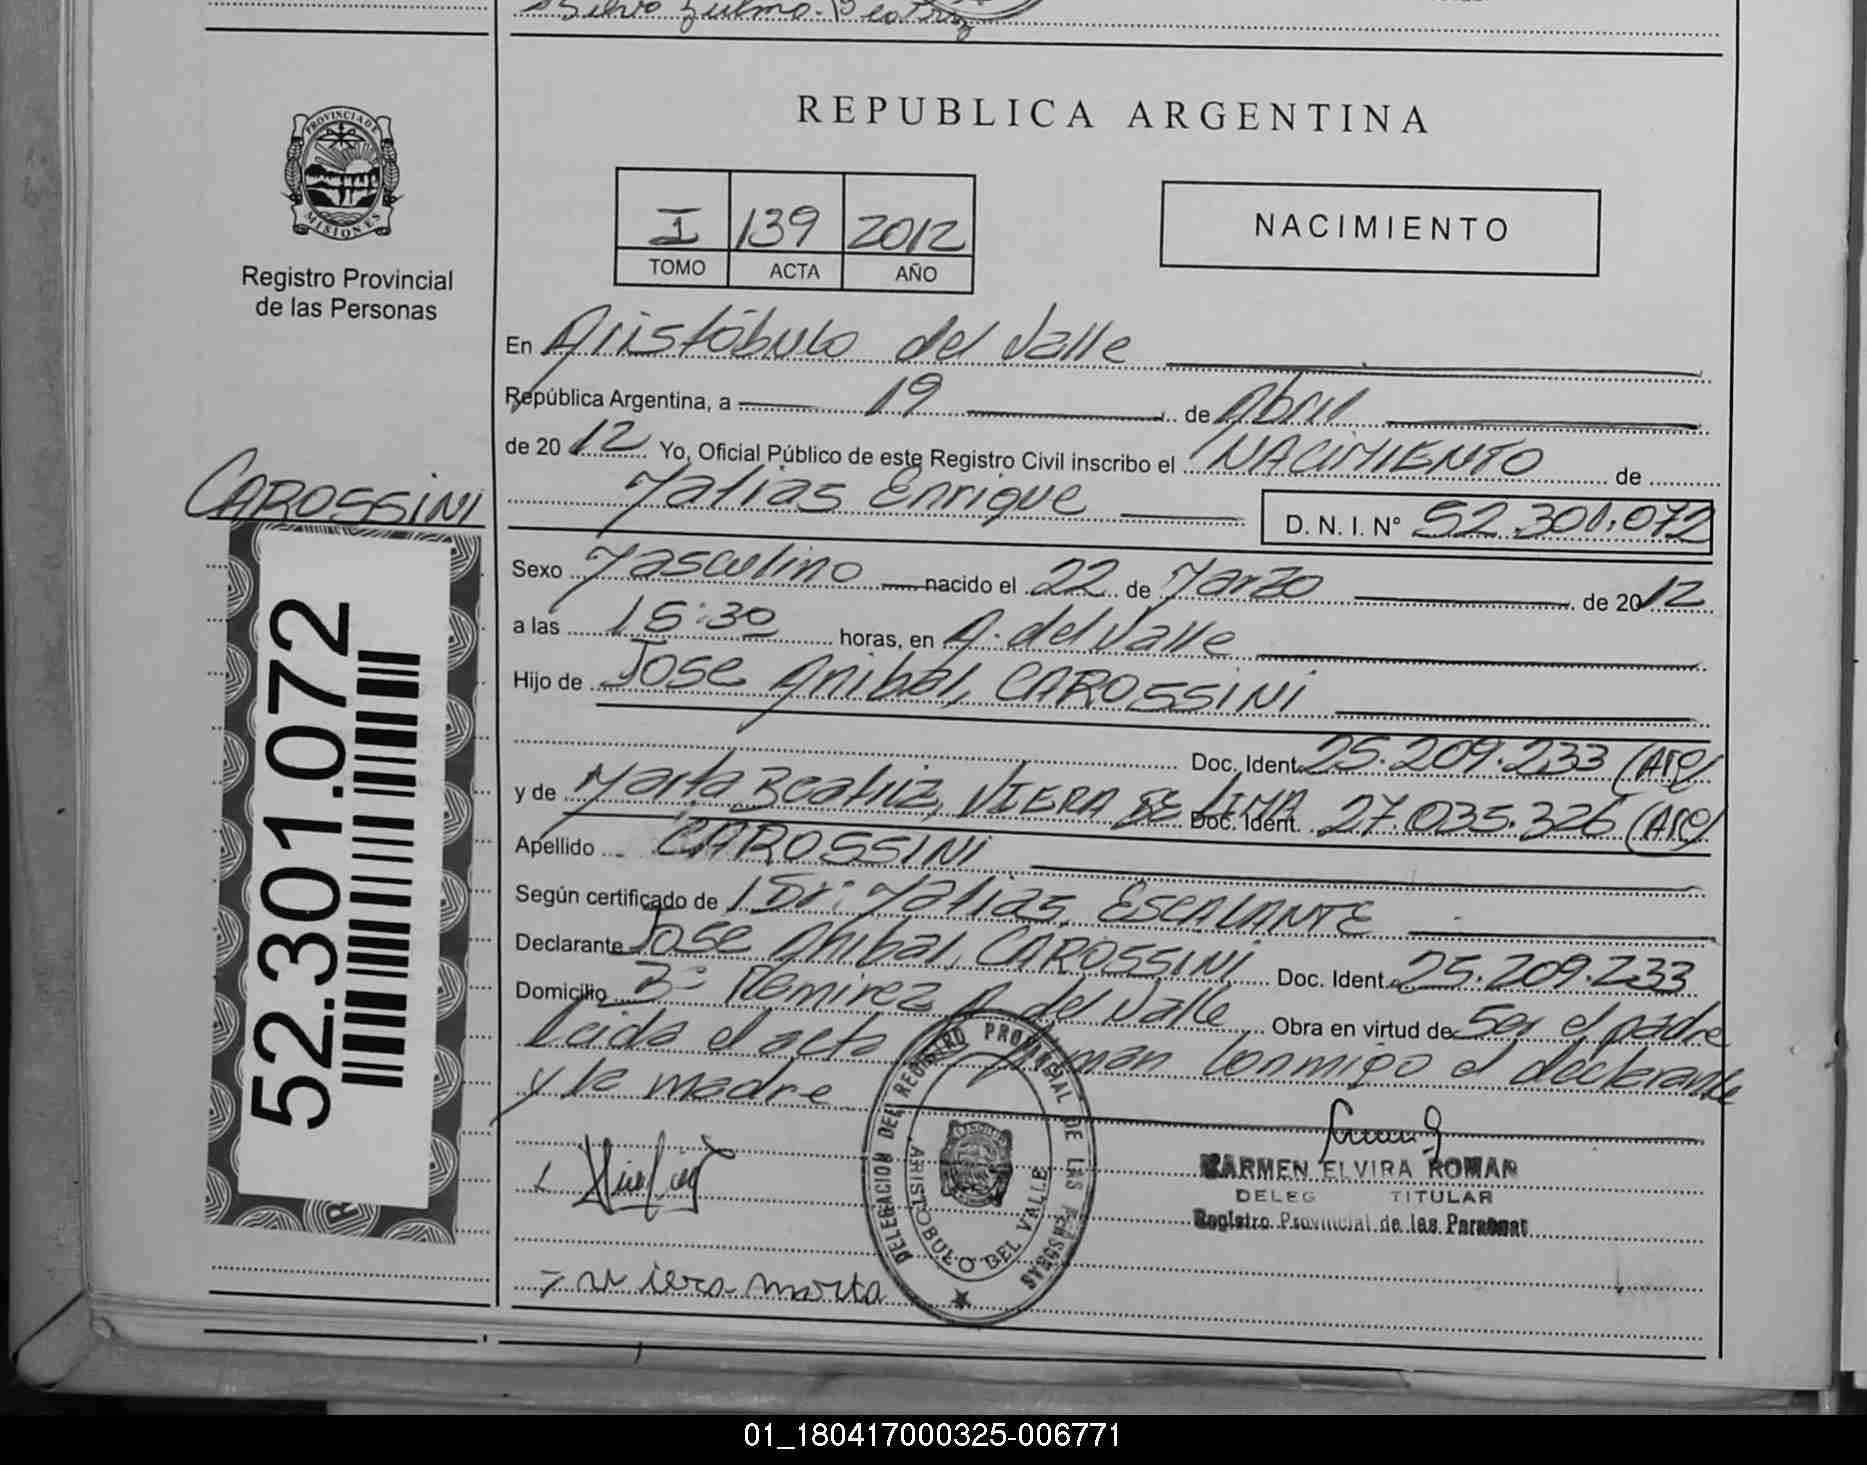 Silva Zulma Beatriz
PROVINCIA DE
MISIONES
Registro Provincial
de las Personas
CAROSSINI
52.301.072
REPUBLICA ARGENTINA
I 139 2012
TOMO ACTA AÑO
NACIMIENTO
En Aristóbulo del Valle
República Argentina, a 19 de Abril
de 2012 Yo, Oficial Público de este Registro Civil inscribo el NACIMIENTO de
Matias Enrique D. N. I. N° 52.301.072
Sexo Masculino nacido el 22 de Marzo de 2012
a las 15:30 horas, en A. del Valle
Hijo de Jose Anibal, CAROSSINI
Doc. Ident. 25.209.233 (Arg)
y de Marta Beatriz, VIERA DE LIMA Doc. Ident. 27.035.326 (Arg)
Apellido CAROSSINI
Según certificado de Matias, ESCALANTE
Declarante Jose Anibal, CAROSSINI Doc. Ident. 25.209.233
Domicilio B° Remirez A. del Valle Obra en virtud de Ser el padre
Leida el acta firman conmigo el declarante
y la madre
DELEGACION DEL REGISTRO PROVINCIAL DE LAS PERSONAS
ARISTOBULO DEL VALLE
CARMEN ELVIRA ROMAN
DELEG TITULAR
Registro Provincial de las Personas
viera marta
01_180417000325-006771